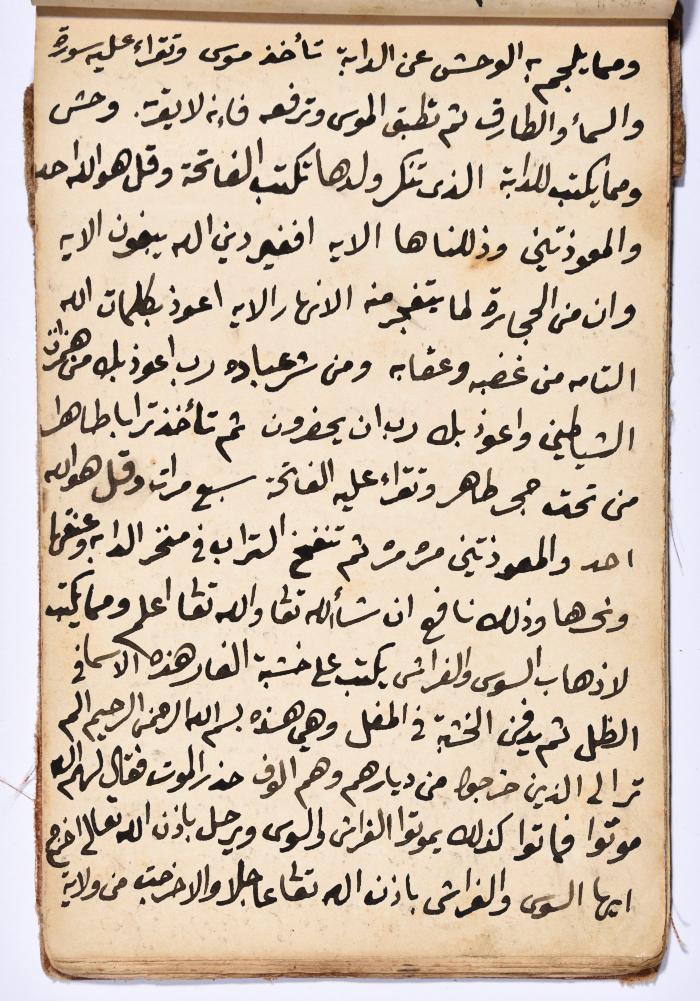 ومما يلجم به الوحش عن الدابة تأخذ موسى وتقراء عليه سورة
والسماء والطارق ثم تطبق الموسى وترفعه فانه لا يقربه وحش
ومما يكتب للدابة الذى تنكر ولدها تكتب الفاتحة وقل هو الله احد
والمعوذتين وذللناها الايه افغير دين الله يبغون الايه
وان من الحجارة لما يتفجر منه الانهار الايه اعوذ بكلمات الله
التامه من غضبه وعقابه ومن شر عباده رب اعوذ بك من همزات
الشياطين واعوذ بك رب ان يحضرون ثم تأخذ ترابا طاهرا
من تحت حجر طاهر وتقراء عليه الفاتحة سبع مرات وقل هو الله
احد والمعوذتين مره مره ثم تنفخ التراب في منخر الدابه وعنقها
ونحرها وذلك نافع ان شاء الله تعا والله تعا اعلم ومما يكتب
لاذهاب السوس والفراش يكتب على خشبة الغار هذه الاسما في
الظل ثم يدفن الخشبة في المغل وهي هذه بسم الله الرحمن الرحيم الم
تر الى الذين خرجوا من ديارهم وهم الوف حذر الموت فقال لهم الله
موتوا فماتوا كذلك يموتوا الفراش والسوس ويرحل باذن الله تعالى اخرج
ايها السوس والفراش باذن الله تعا عاجلا والا خرجت من ولاية